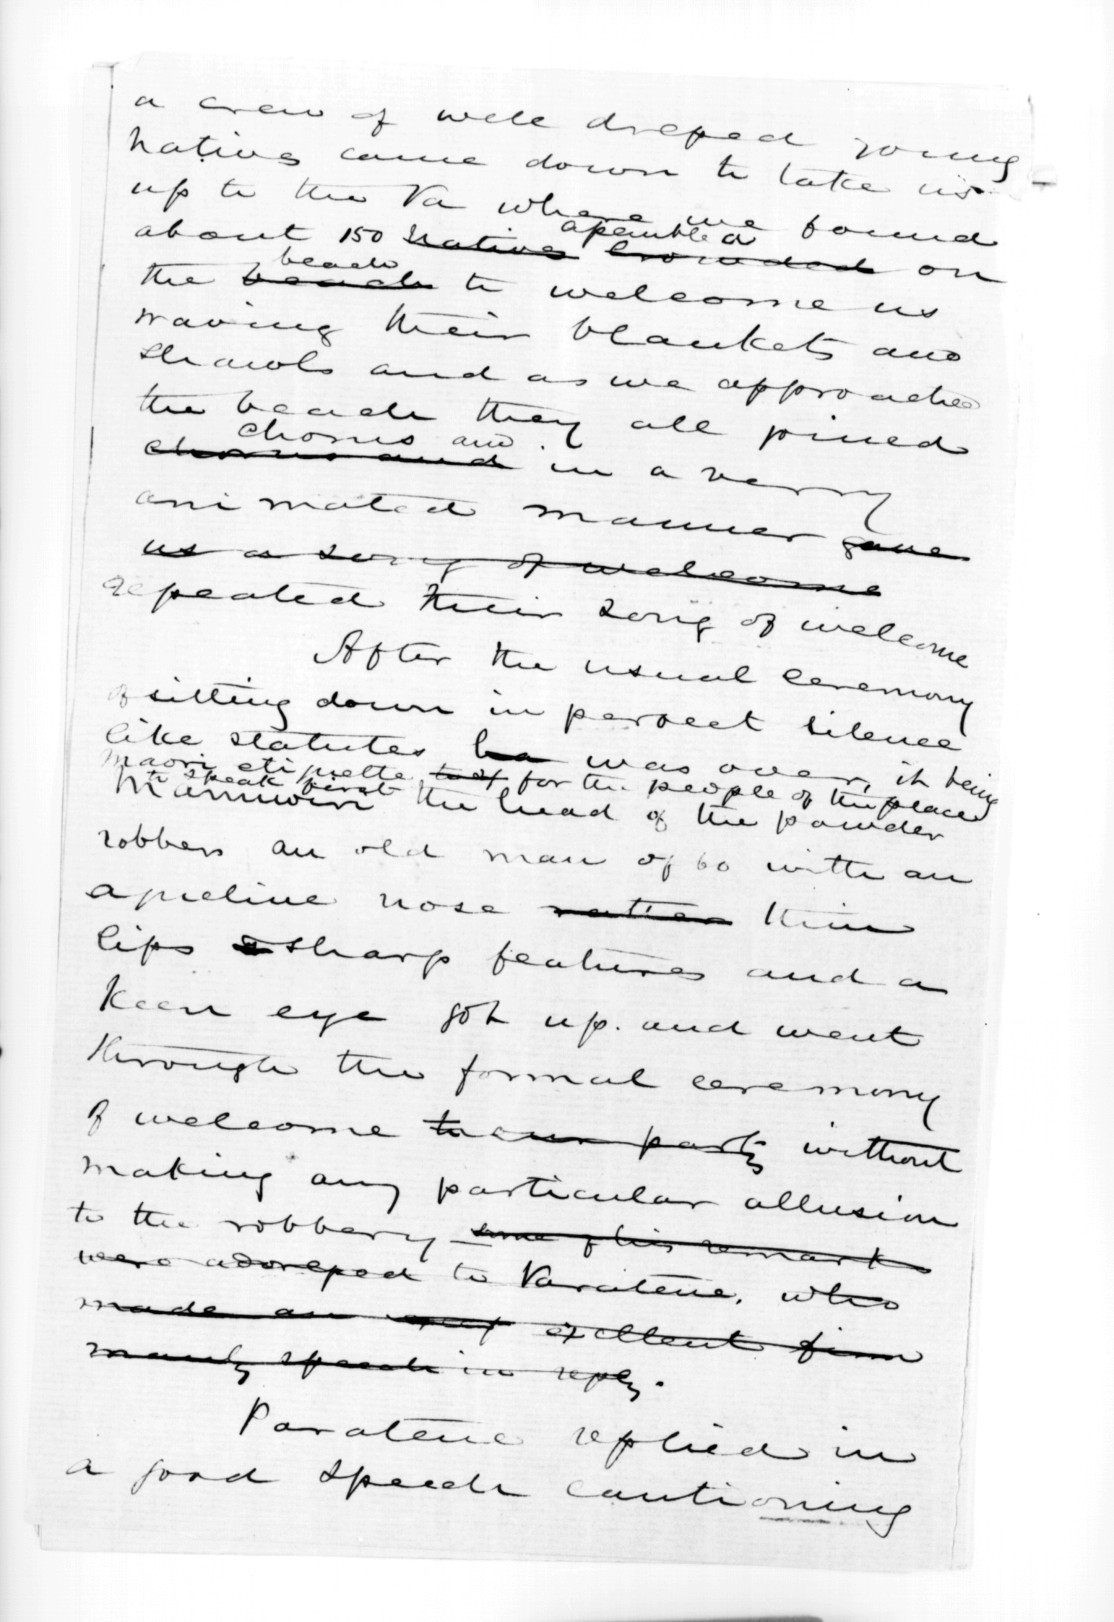 a crew of well dressed young
natives came down to take us
up to the Pa where we found
assembled
about 150 natives crowded on
beach
the beach to welcome us
waving their blankets and
shawls and as we approached
the beach they all joined
chorus and
chorus and in a very
animated manner gave
us a song of welcome
repeated their song of welcome
After the usual ceremony
of sitting down in perfect silence
like statutes ha was over, it being
maori etiquette for the people of the place
to speak first
the head of the powder
robbers an old man of 60 with an
aqueline nose rather thin
lips & sharp features and a
keen eye got up. and went
through the formal ceremony
of welcome to our party without
making any particular allusion
to the robbery some of his remarks
were adressed to Paratene. who
made an excellent firm
manly speech in reply.
Paratene replied in
a good speech cautioning